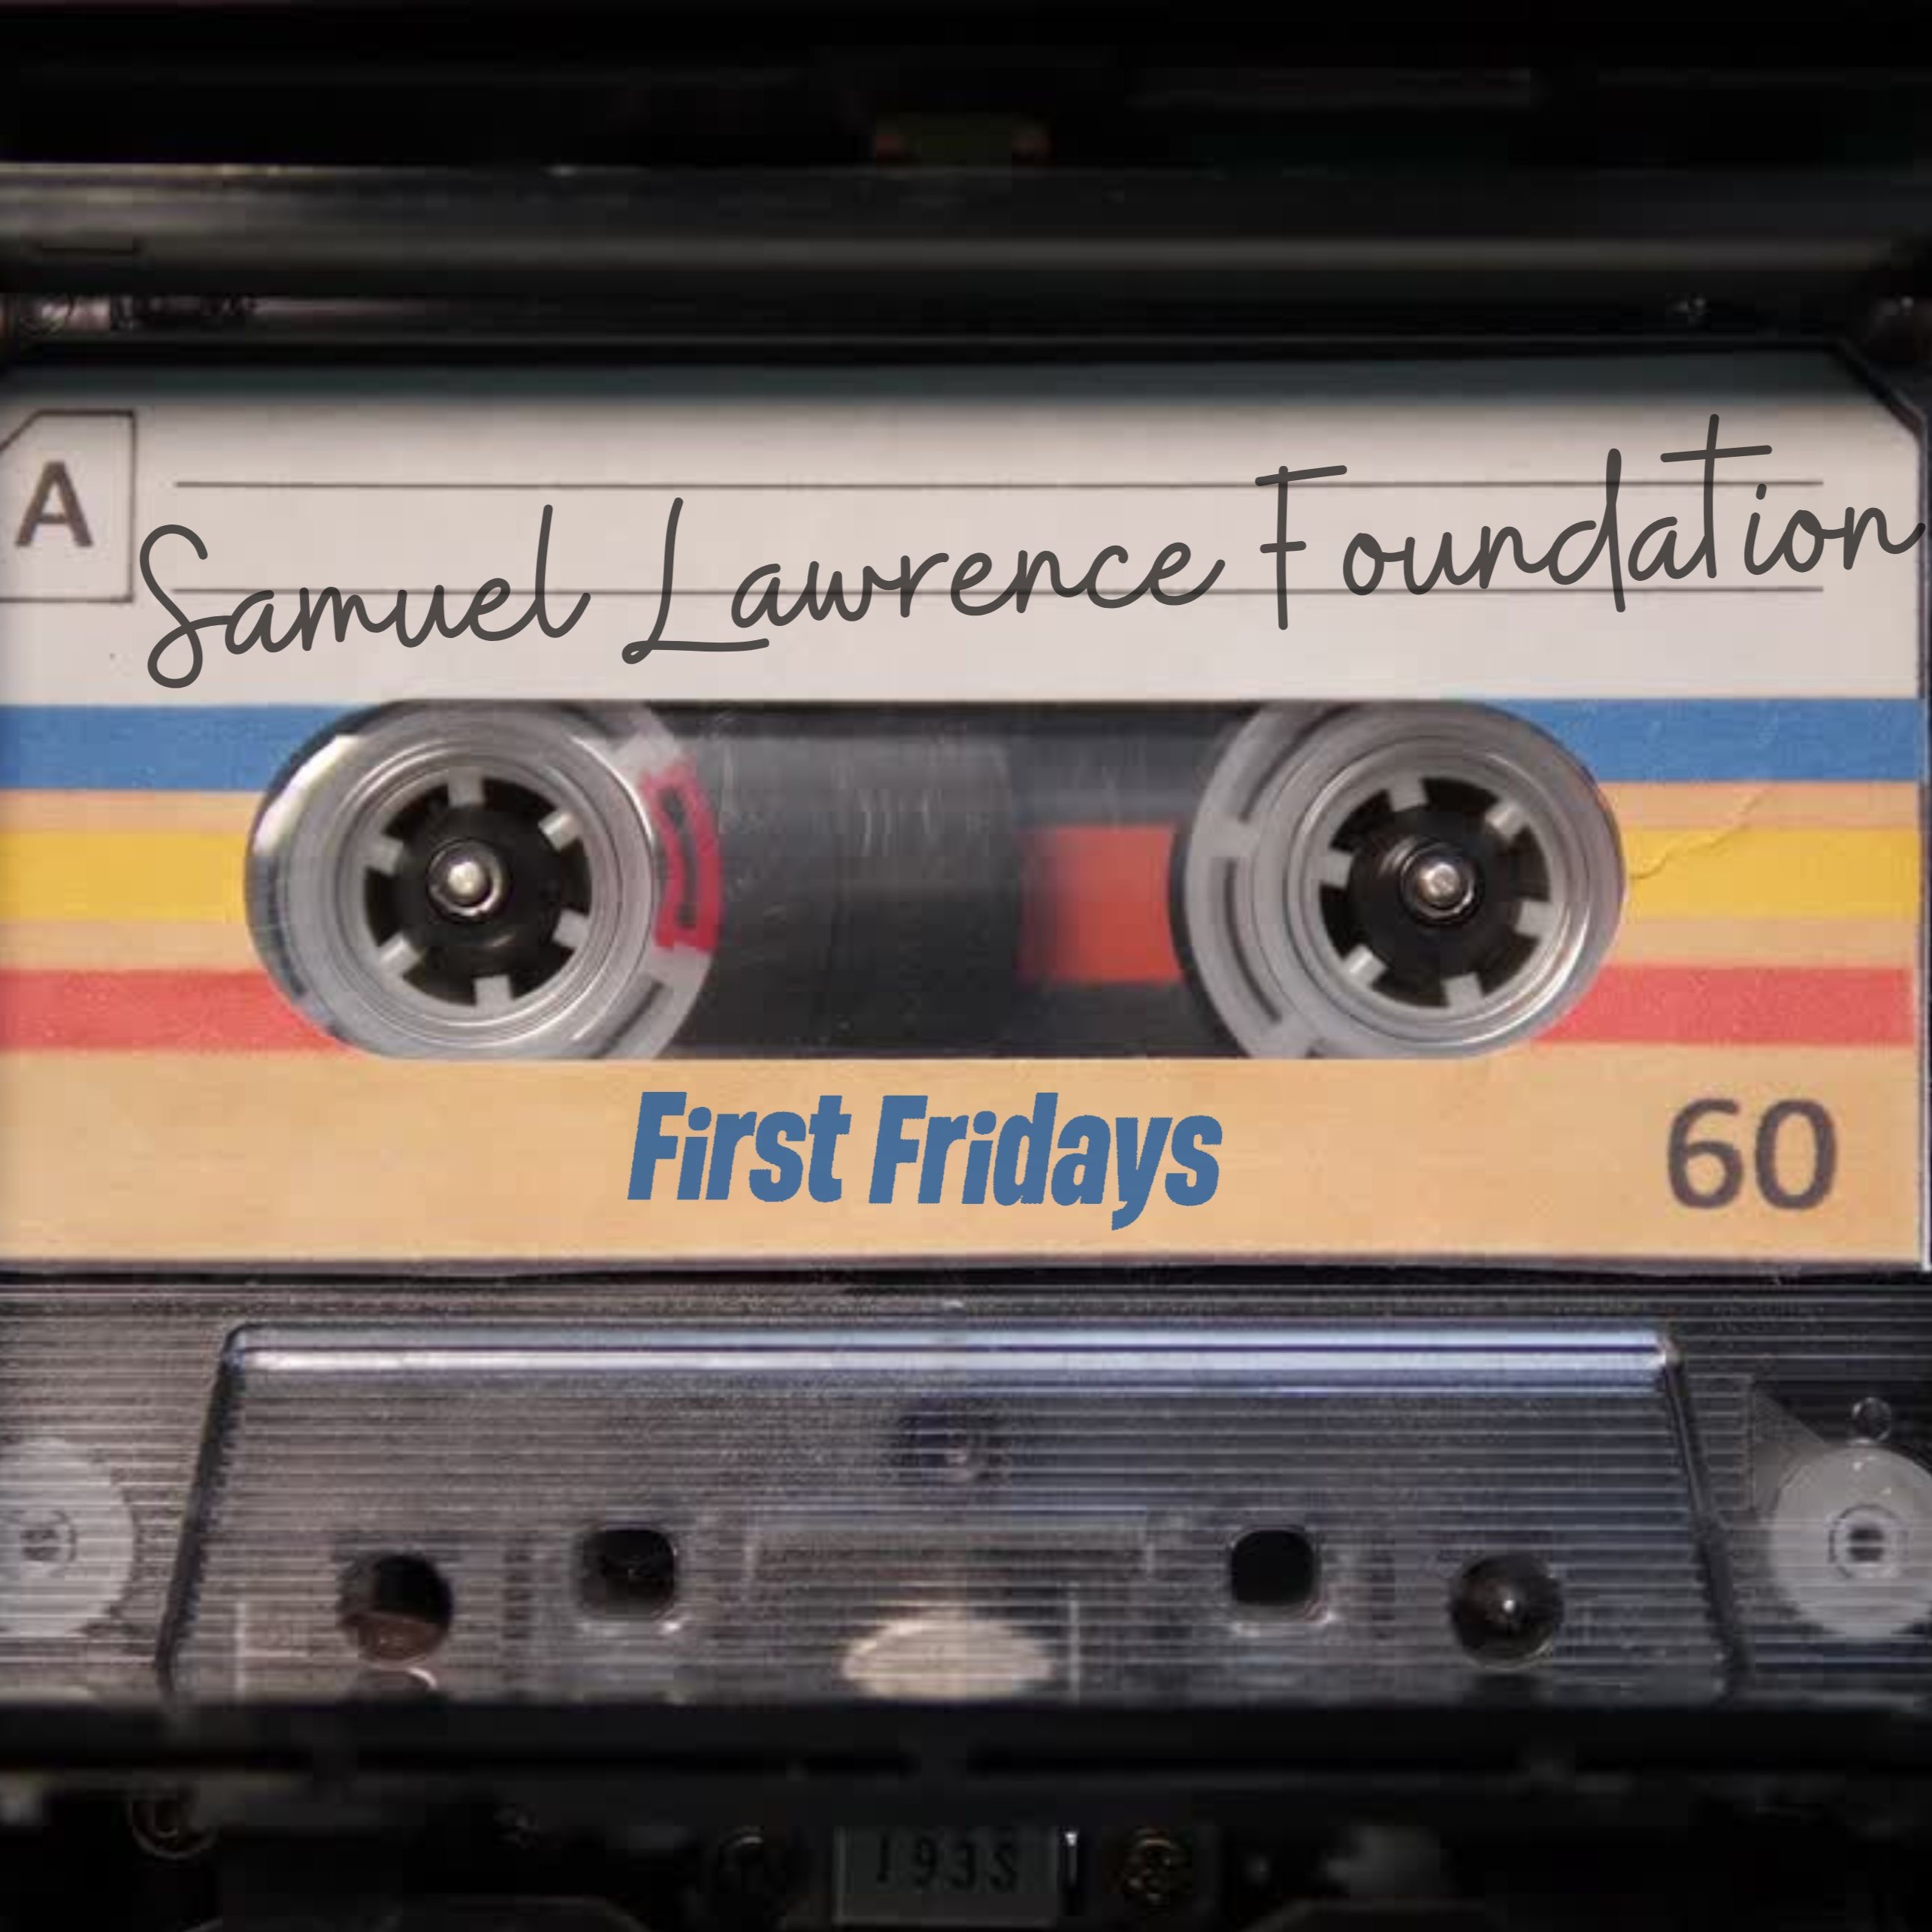 A
Samuel Lawrence Foundation
First Fridays
60